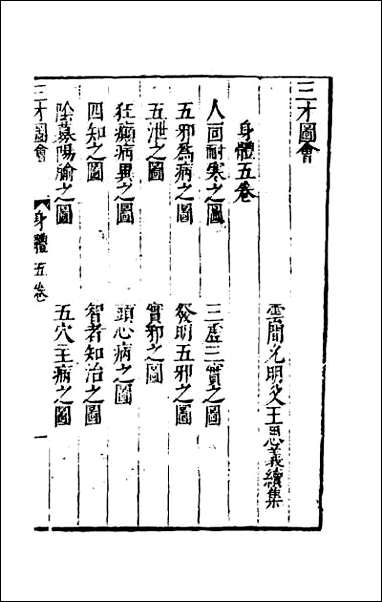 三才圖會
雲間允明父王思義續集
身體五卷
人面耐寒之圖 三虛三實之圖
五邪為病之圖 發明五邪之圖
五泄之圖 實邪之圖
狂癲病異之圖 頭心病之圖
四知之圖 智者知治之圖
陰募陽腧之圖 五穴主病之圖
三才圖會 身體五卷 一